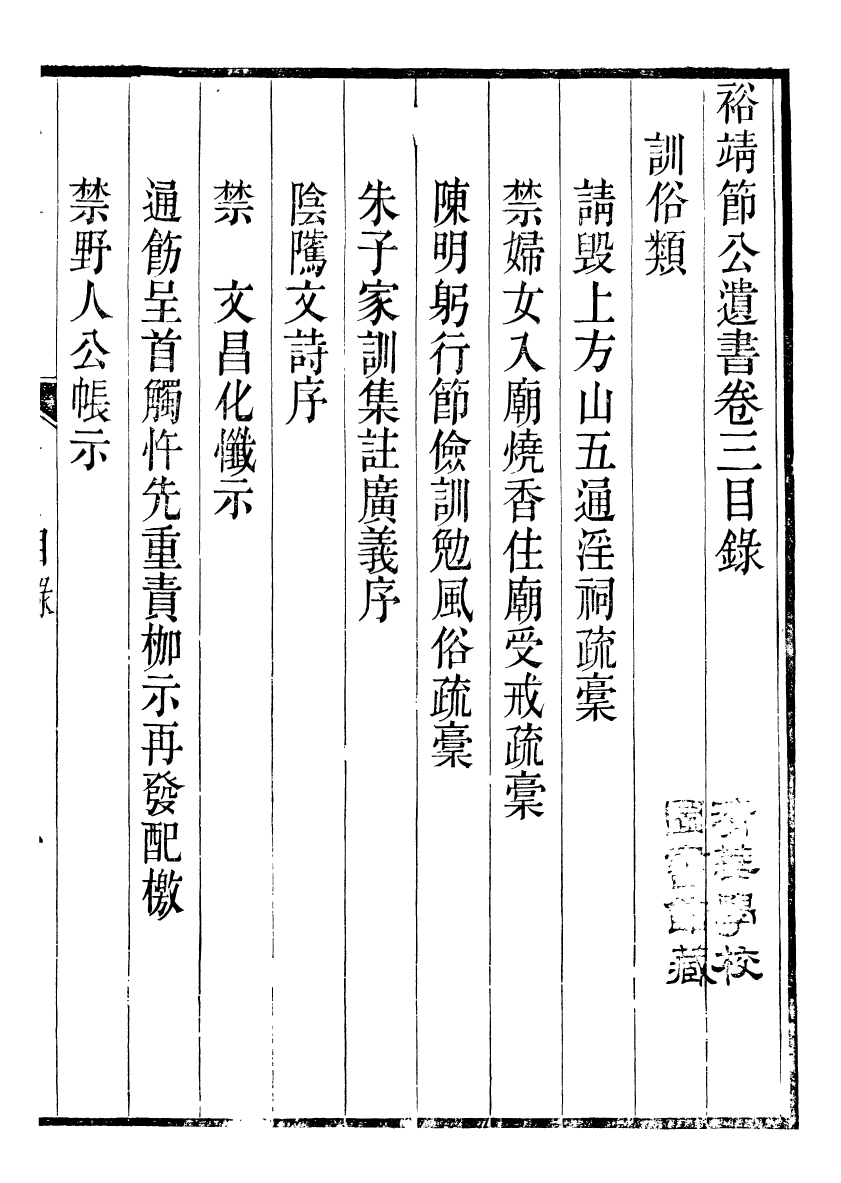 裕靖節公遺書卷三目錄
訓俗類
請毀上方山五通淫祠疏稾
禁婦女入廟燒香住廟受戒疏稾
陳明躬行節儉訓勉風俗疏稾
朱子家訓集註廣義序
陰隲文詩序
禁　文昌化懺示
通飭呈首觸忤先重責枷示再發配檄
禁野人公帳示
目錄
清華學校
圖書館藏